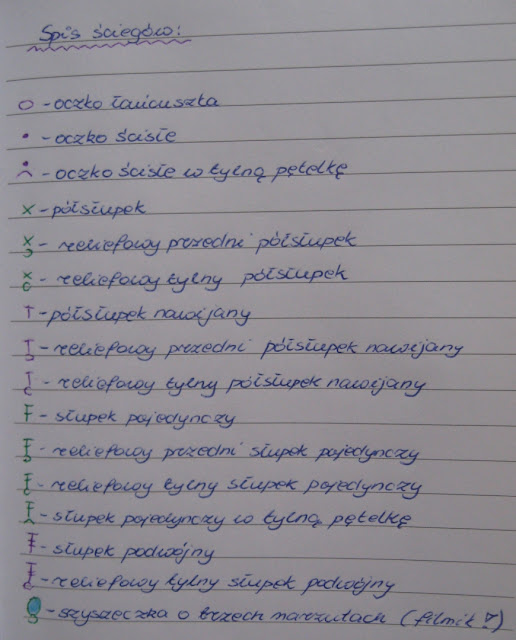 Spis ściegów:
- oczko łańcuszka
- oczko ścisłe
- oczko ścisłe w tylną pętelkę
- półsłupek
- reliefowy przedni półsłupek
- reliefowy tylny półsłupek
- półsłupek nawijany
- reliefowy przedni półsłupek nawijany
- reliefowy tylny półsłupek nawijany
- słupek pojedynczy
- reliefowy przedni słupek pojedynczy
- reliefowy tylny słupek pojedynczy
- słupek pojedynczy w tylną pętelkę
- słupek podwójny
- reliefowy tylny słupek podwójny
- szyszeczka o trzech narzutach (filmik!)